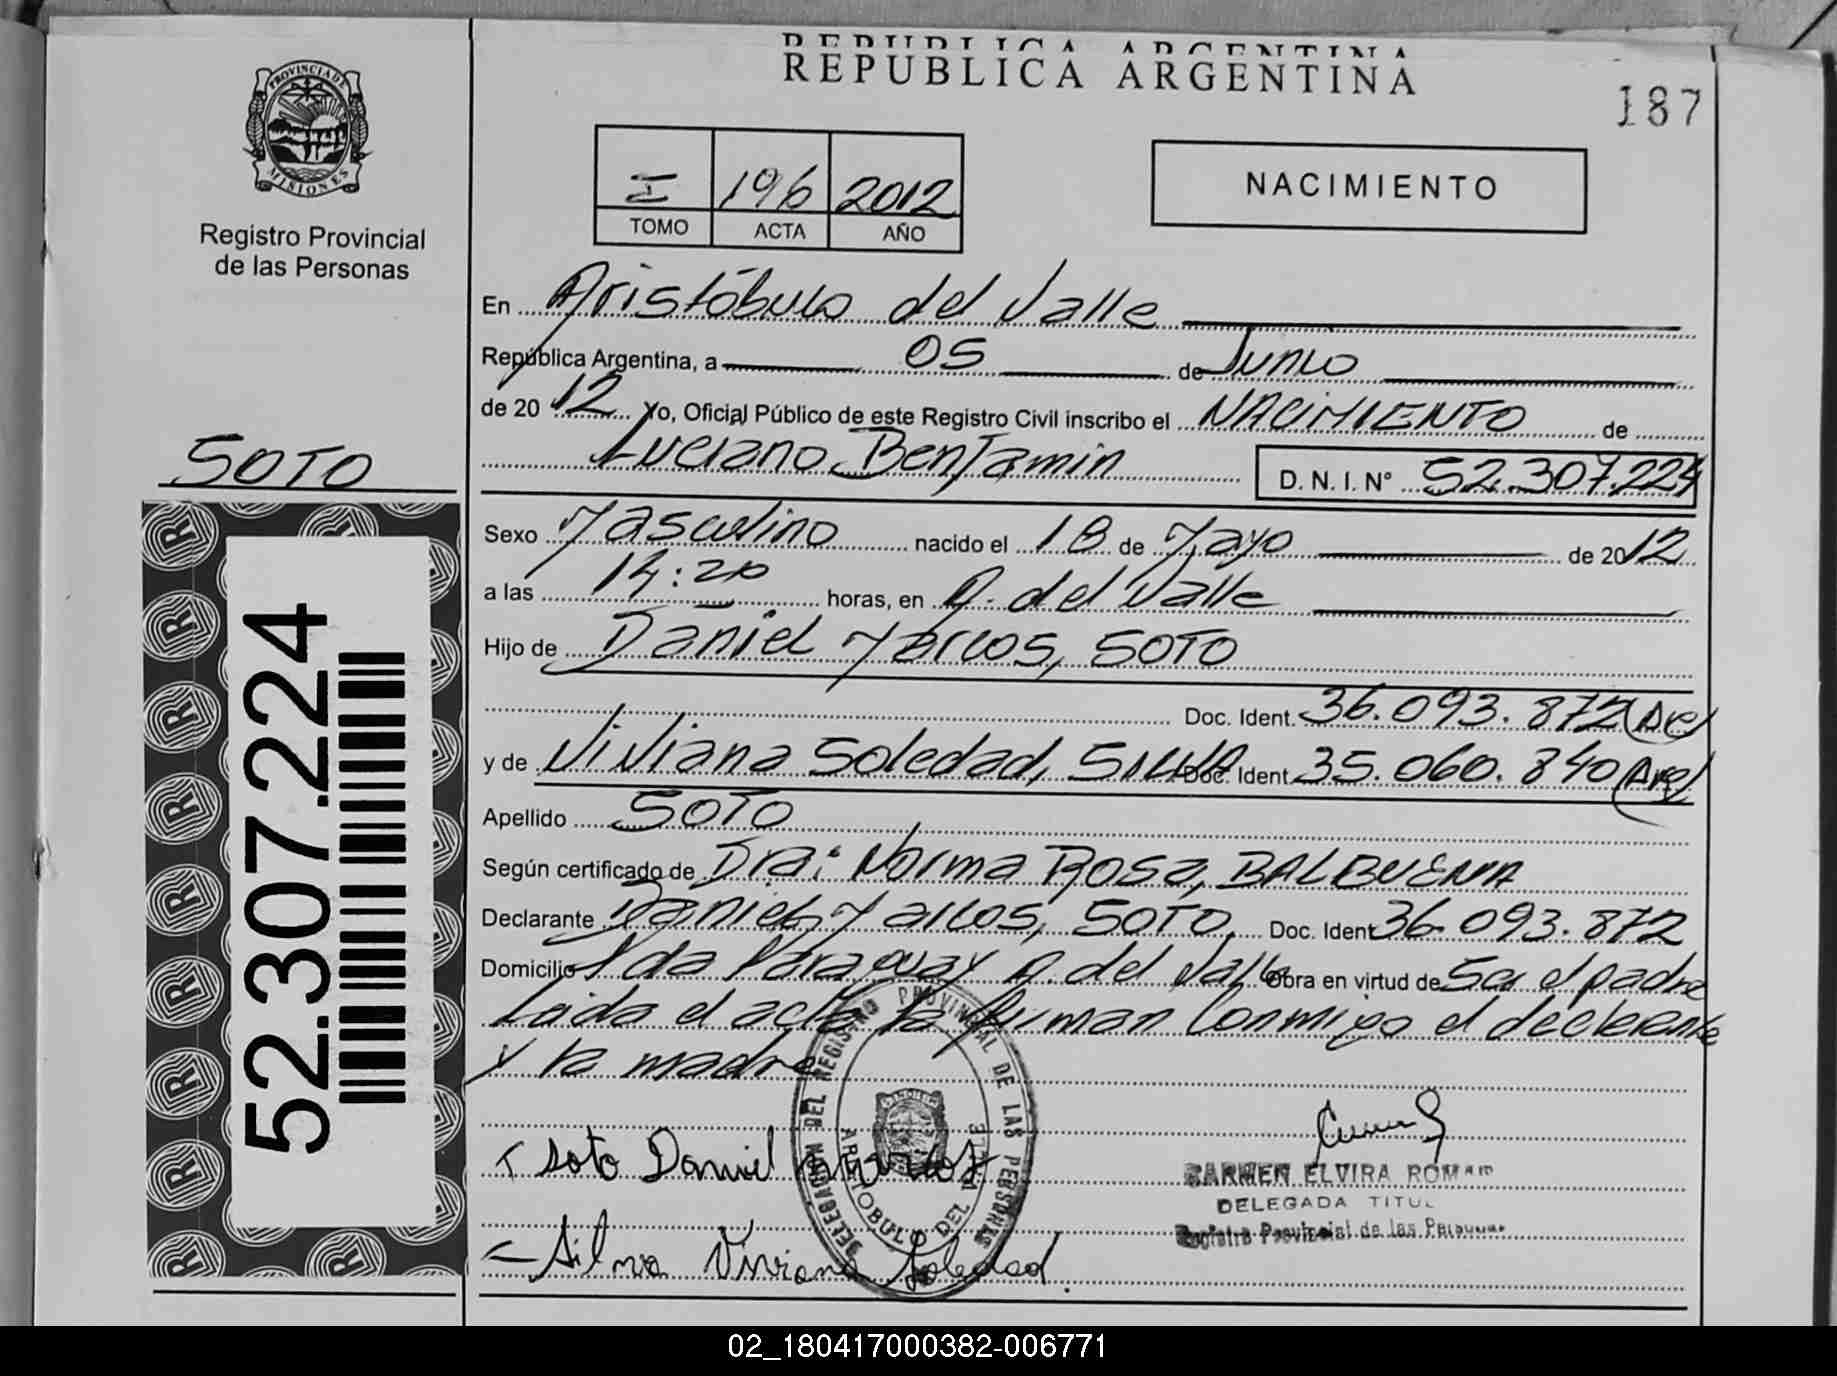 REPUBLICA ARGENTINA
REPUBLICA ARGENTINA
187
PROVINCIA DE MISIONES
Registro Provincial
de las Personas
I 196 2012
TOMO ACTA AÑO
NACIMIENTO
En Aristóbulo del Valle
República Argentina, a 05 de Junio
de 2012 Yo, Oficial Público de este Registro Civil inscribo el NACIMIENTO de
Luciano Benjamin D. N. I. N° 52.307.224
SOTO
Sexo Masculino nacido el 18 de Mayo de 2012
a las 14:20 horas, en A. del Valle
Hijo de Daniel Marcos, SOTO
Doc. Ident. 36.093.872 (Arg)
y de Viviana Soledad, SILVA Doc. Ident. 35.060.840 (Arg)
Apellido SOTO
Según certificado de Dra: Norma Rosa, BALBUENA
Declarante Daniel Marcos, SOTO. Doc. Ident 36.093.872
Domicilio Avda Paraguay A. del Valle Obra en virtud de Ser el padre
Leida el acta la firman conmigo el declarante
y la madre
52.307.224
Soto Daniel Marcos
Silva Viviana Soledad.
DELEGACION DEL REGISTRO PROVINCIAL DE LAS PERSONAS
ARISTOBULO DEL VALLE
CARMEN ELVIRA ROMAN
DELEGADA TITUL
Registro Provincial de las Personas
02_180417000382-006771